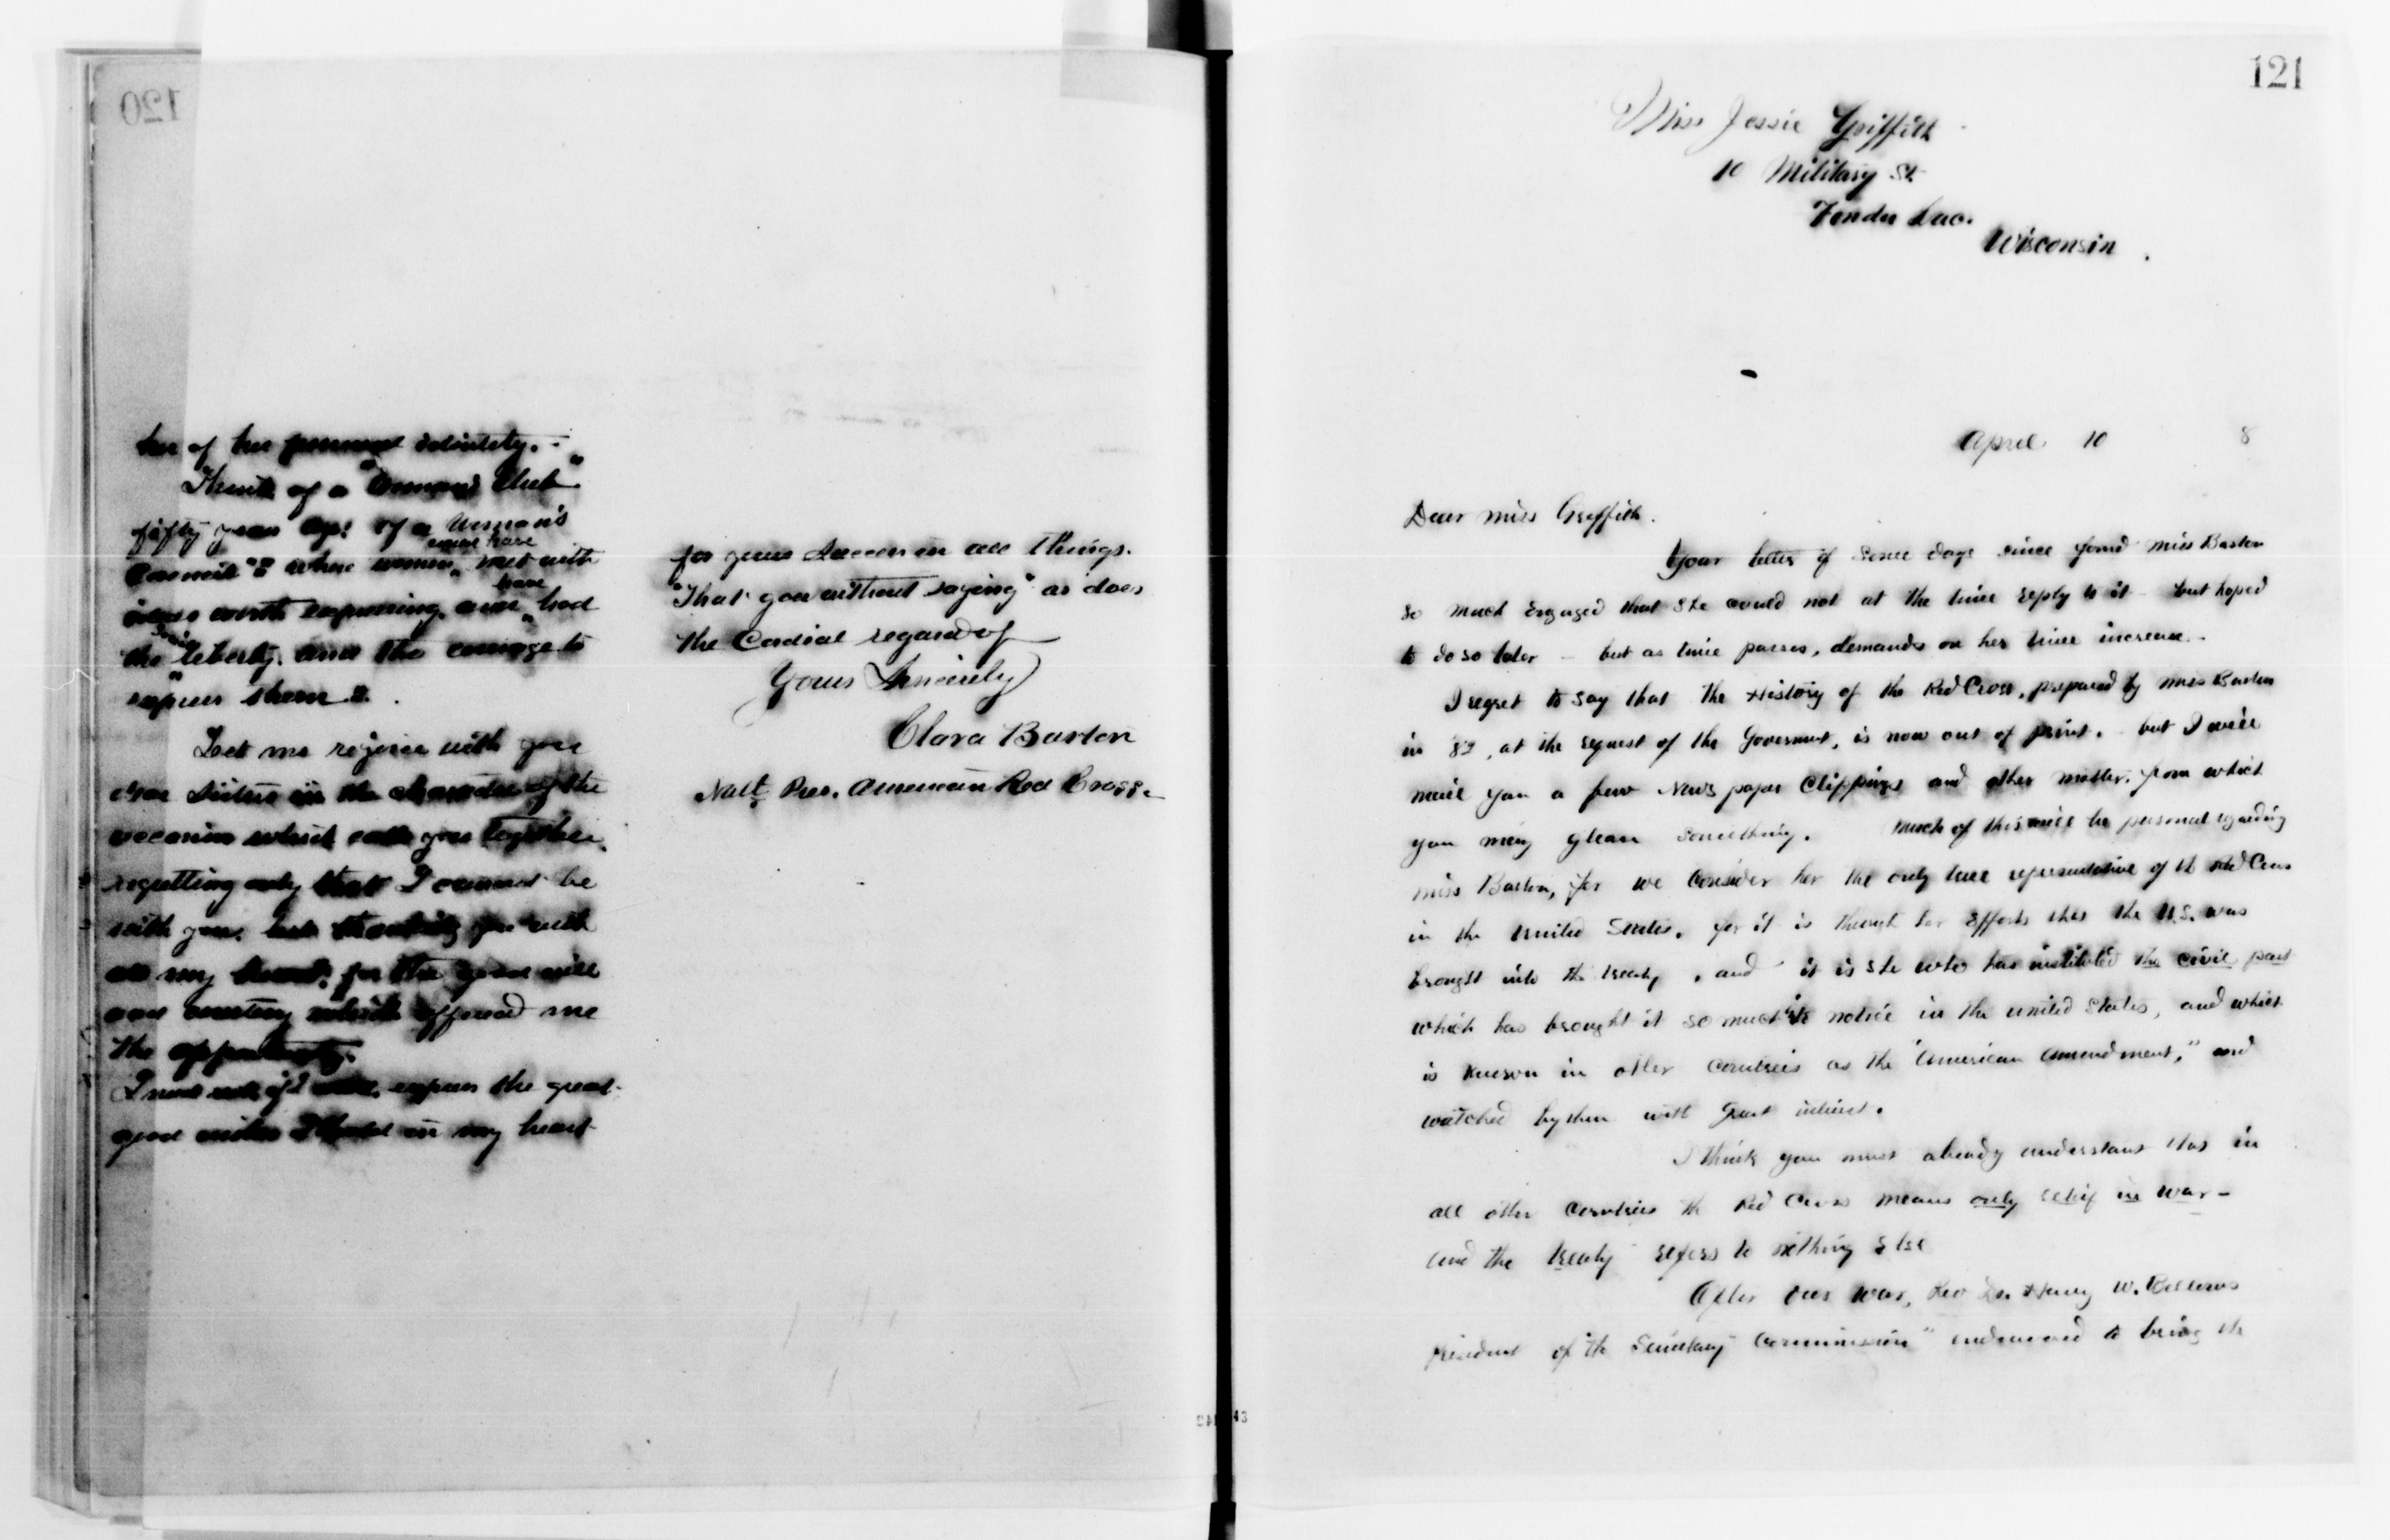 120
her of her personal identity. -
Think of a "Woman's Club"
fifty years ago! of a Woman's
Council"? where women met with
could have
ideas worth expressing and had
have
the liberty and the courage to
express them?
Let me rejoice with you
dear Sisters in the character of the
occasion which calls you together,
regretting only that I cannot be
with you, but thanking you with
all my heart, for the good will
and courtesy which offered me
the opportunity.
I need not, if I could, express the great
good wishes I hold in my heart
for your success in all things.
"That goes without saying" as does
the Cordial regards of
Yours Sincerely
Clara Barton
Natl Pres. American Red Cross.
121
Miss Jessie Griffith
10 Military St.
Fondu Lac.
Wisconsin.
April 10 8
Dear Miss Griffith.
Your letter of some days since found Miss Barton
so much engaged that she could not at the time reply to it - but hoped
to do so later - but as time passes, demands on her time increase -
I regret to say that the History of the Red Cross, prepared by Miss Barton
in '82, at the request of the Government, is now out of print. - but I will
mail you a few News paper Clippings and other matter, from which
you may glean something. Much of this will be personal regarding
Miss Barton, for we consider her the only true representative of the Red Cross
in the United States, for it is through her efforts that the U.S. was
brought into the treaty, and it is she who has instituted the civil part
which has brought it so much into notice in the United States, and which
is known in other countries as the "American Amendment," and
watched by them with great interest.
I think you must already understand that in
all other countries the Red Cross means only relief in war -
and the treaty refers to nothing else
After our war, Rev Dr. Henry W. Bellows
President of the Sanitary Commission" endeavored to bring the